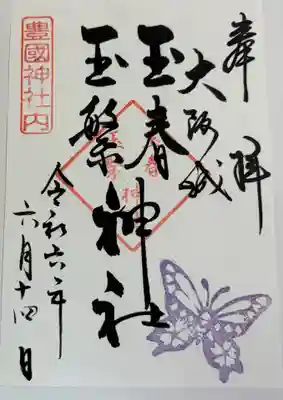 奉拝
大阪城
玉春
玉繁
神社
豊國神社内
令和六年
六月十四日